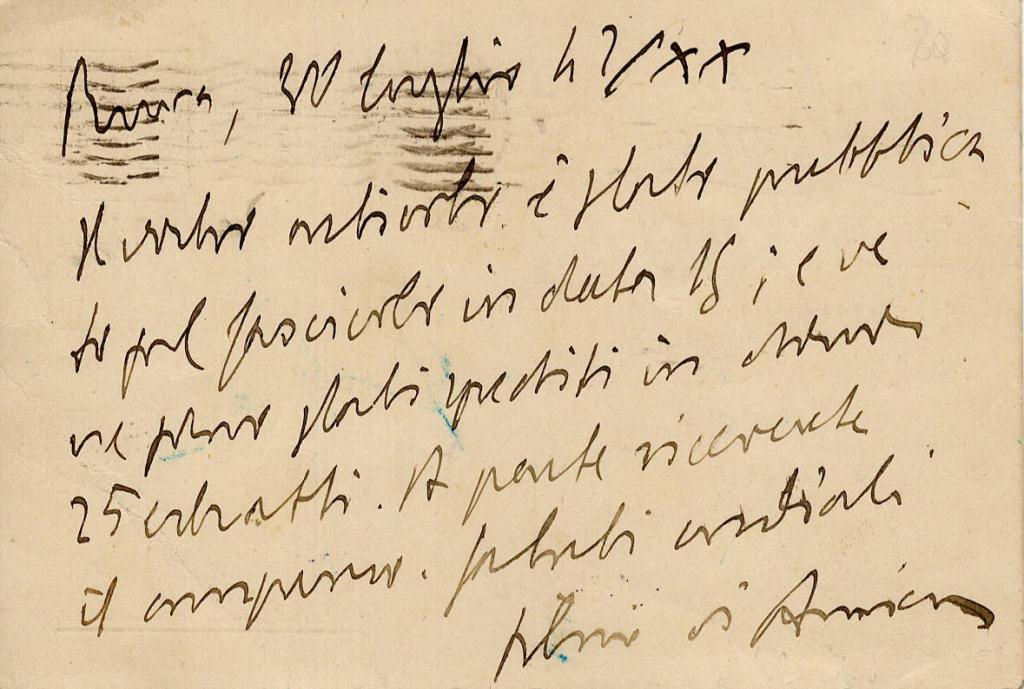 Roma, 30 luglio 42/XX
Il vostro articolo è stato pubblica
to nel fascicolo in data 15; e ve
ne sono stati spediti in dono
25 estratti. A parte riceverete
il compenso. Saluti cordiali
Silvio d'Amico